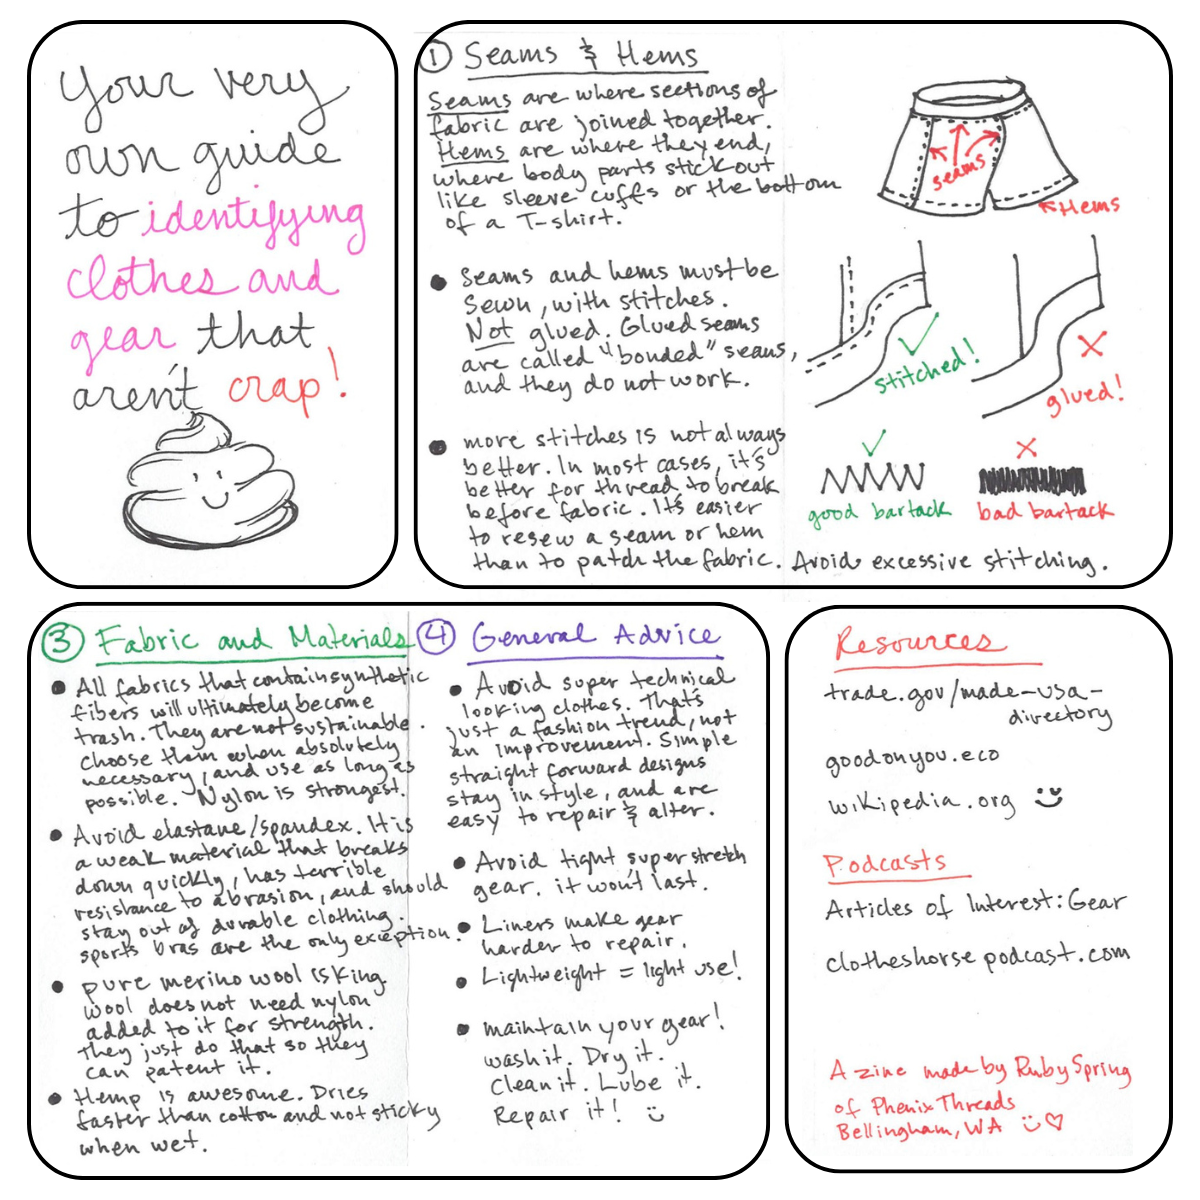 Your very
own guide
to identifying
clothes and
gear that
aren't crap!
① Seams & Hems
Seams are where sections of
fabric are joined together.
Hems are where they end,
where body parts stick out
like sleeve cuffs or the bottom
of a T-shirt.
• Seams and hems must be
sewn, with stitches.
Not glued. Glued seams
are called "bonded" seams,
and they do not work.
• more stitches is not always
better. In most cases, it's
better for thread to break
before fabric. It's easier
to resew a seam or hem
than to patch the fabric. Avoid excessive stitching.
seams
Hems
stitched!
glued!
good bartack
bad bartack
③ Fabric and Materials
• All fabrics that contain synthetic
fibers will ultimately become
trash. They are not sustainable.
choose them when absolutely
necessary, and use as long as
possible. Nylon is strongest.
• Avoid elastane/spandex. It is
a weak material that breaks
down quickly, has terrible
resistance to abrasion, and should
stay out of durable clothing.
sports bras are the only exception.
• pure merino wool is king.
wool does not need nylon
added to it for strength.
They just do that so they
can patent it.
• Hemp is awesome. Dries
faster than cotton and not sticky
when wet.
④ General Advice
• Avoid super technical
looking clothes. That's
just a fashion trend, not
an improvement. Simple
straight forward designs
stay in style, and are
easy to repair & alter.
• Avoid tight, super stretch
gear. it won't last.
• Liners make gear
harder to repair.
• Lightweight = light use!
• maintain your gear!
wash it. Dry it.
Clean it. Lube it.
Repair it!
Resources
trade.gov/made-usa-
directory
goodonyou.eco
wikipedia.org
Podcasts
Articles of Interest: Gear
clotheshorsepodcast.com
A zine made by Ruby Spring
of Phenix Threads
Bellingham, WA